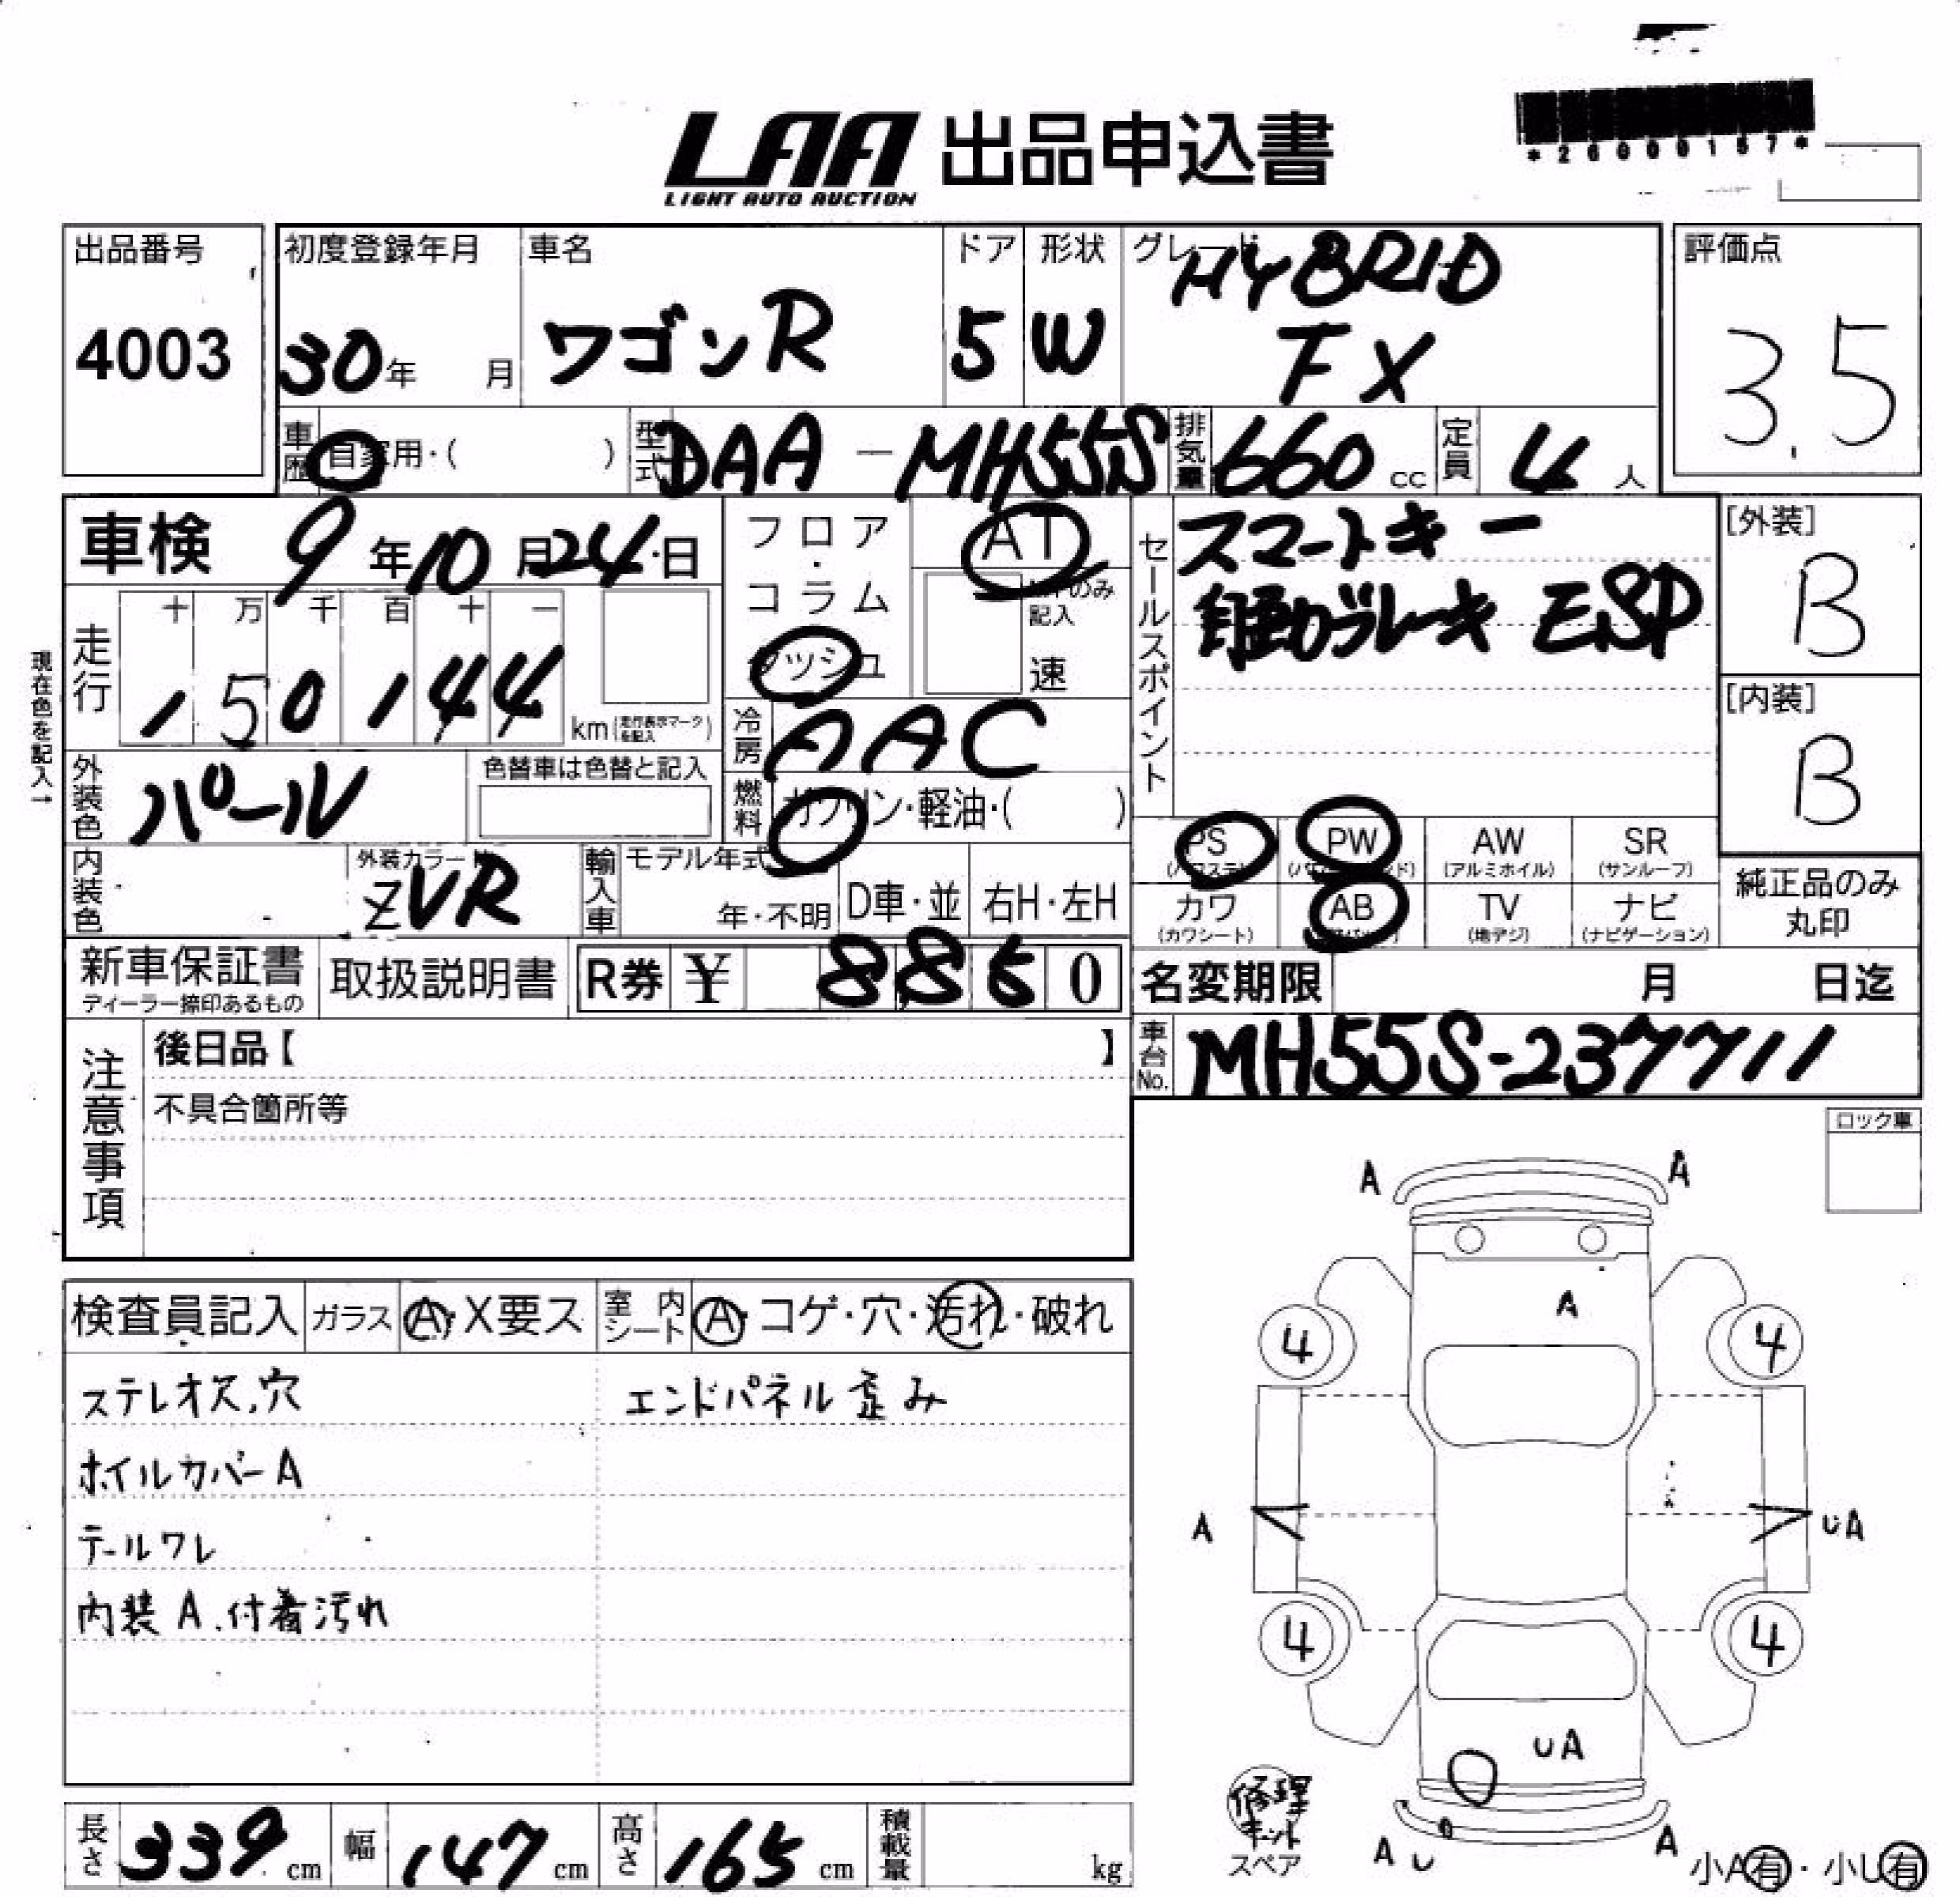 *26000157*
LAA 出品申込書
LIGHT AUTO AUCTION
出品番号
4003
初度登録年月
30年 月
車名
ワゴンR
ドア
5
形状
W
グレード
HYBRID
FX
評価点
3.5
車歴 自家用・( )
型式 DAA-MH55S
排気量 660 cc
定員 4 人
車検 9年10月24日
フロア・コラム
ダッシュ
AT
のみ
記入
速
セールスポイント
スマートキー
自動ブレーキ ESP
[外装]
B
[内装]
B
現在色を記入→
走行
十 万 千 百 十 一
1 5 0 1 4 4
km (走行表示マークを記入)
冷房 AAC
外装色 パール
色替車は色替と記入
燃料 ガソリン・軽油・( )
PS (パワステ)
PW (パワーウインド)
AW (アルミホイル)
SR (サンルーフ)
内装色
外装カラーNo.
ZVR
輸入車
モデル年式
年・不明
D車・並
右H・左H
カワ (カワシート)
AB (エアバック)
TV (地デジ)
ナビ (ナビゲーション)
純正品のみ
丸印
新車保証書
ディーラー捺印あるもの
取扱説明書
R券 ¥ 8850
名変期限 月 日迄
注意事項
後日品【 】
車台No. MH55S-237711
不具合箇所等
ロック車
A A
A
4 4
A UA
4 4
UA
A U A
検査員記入
ガラス A・X要ス
室内シート A・コゲ・穴・汚れ・破れ
ステレオス.穴
エンドパネル歪み
ホイルカバーA
テールワレ
内装A.付着汚れ
修理
キット
スペア
小A有・小U有
長さ 339 cm
幅 147 cm
高さ 165 cm
積載量 kg